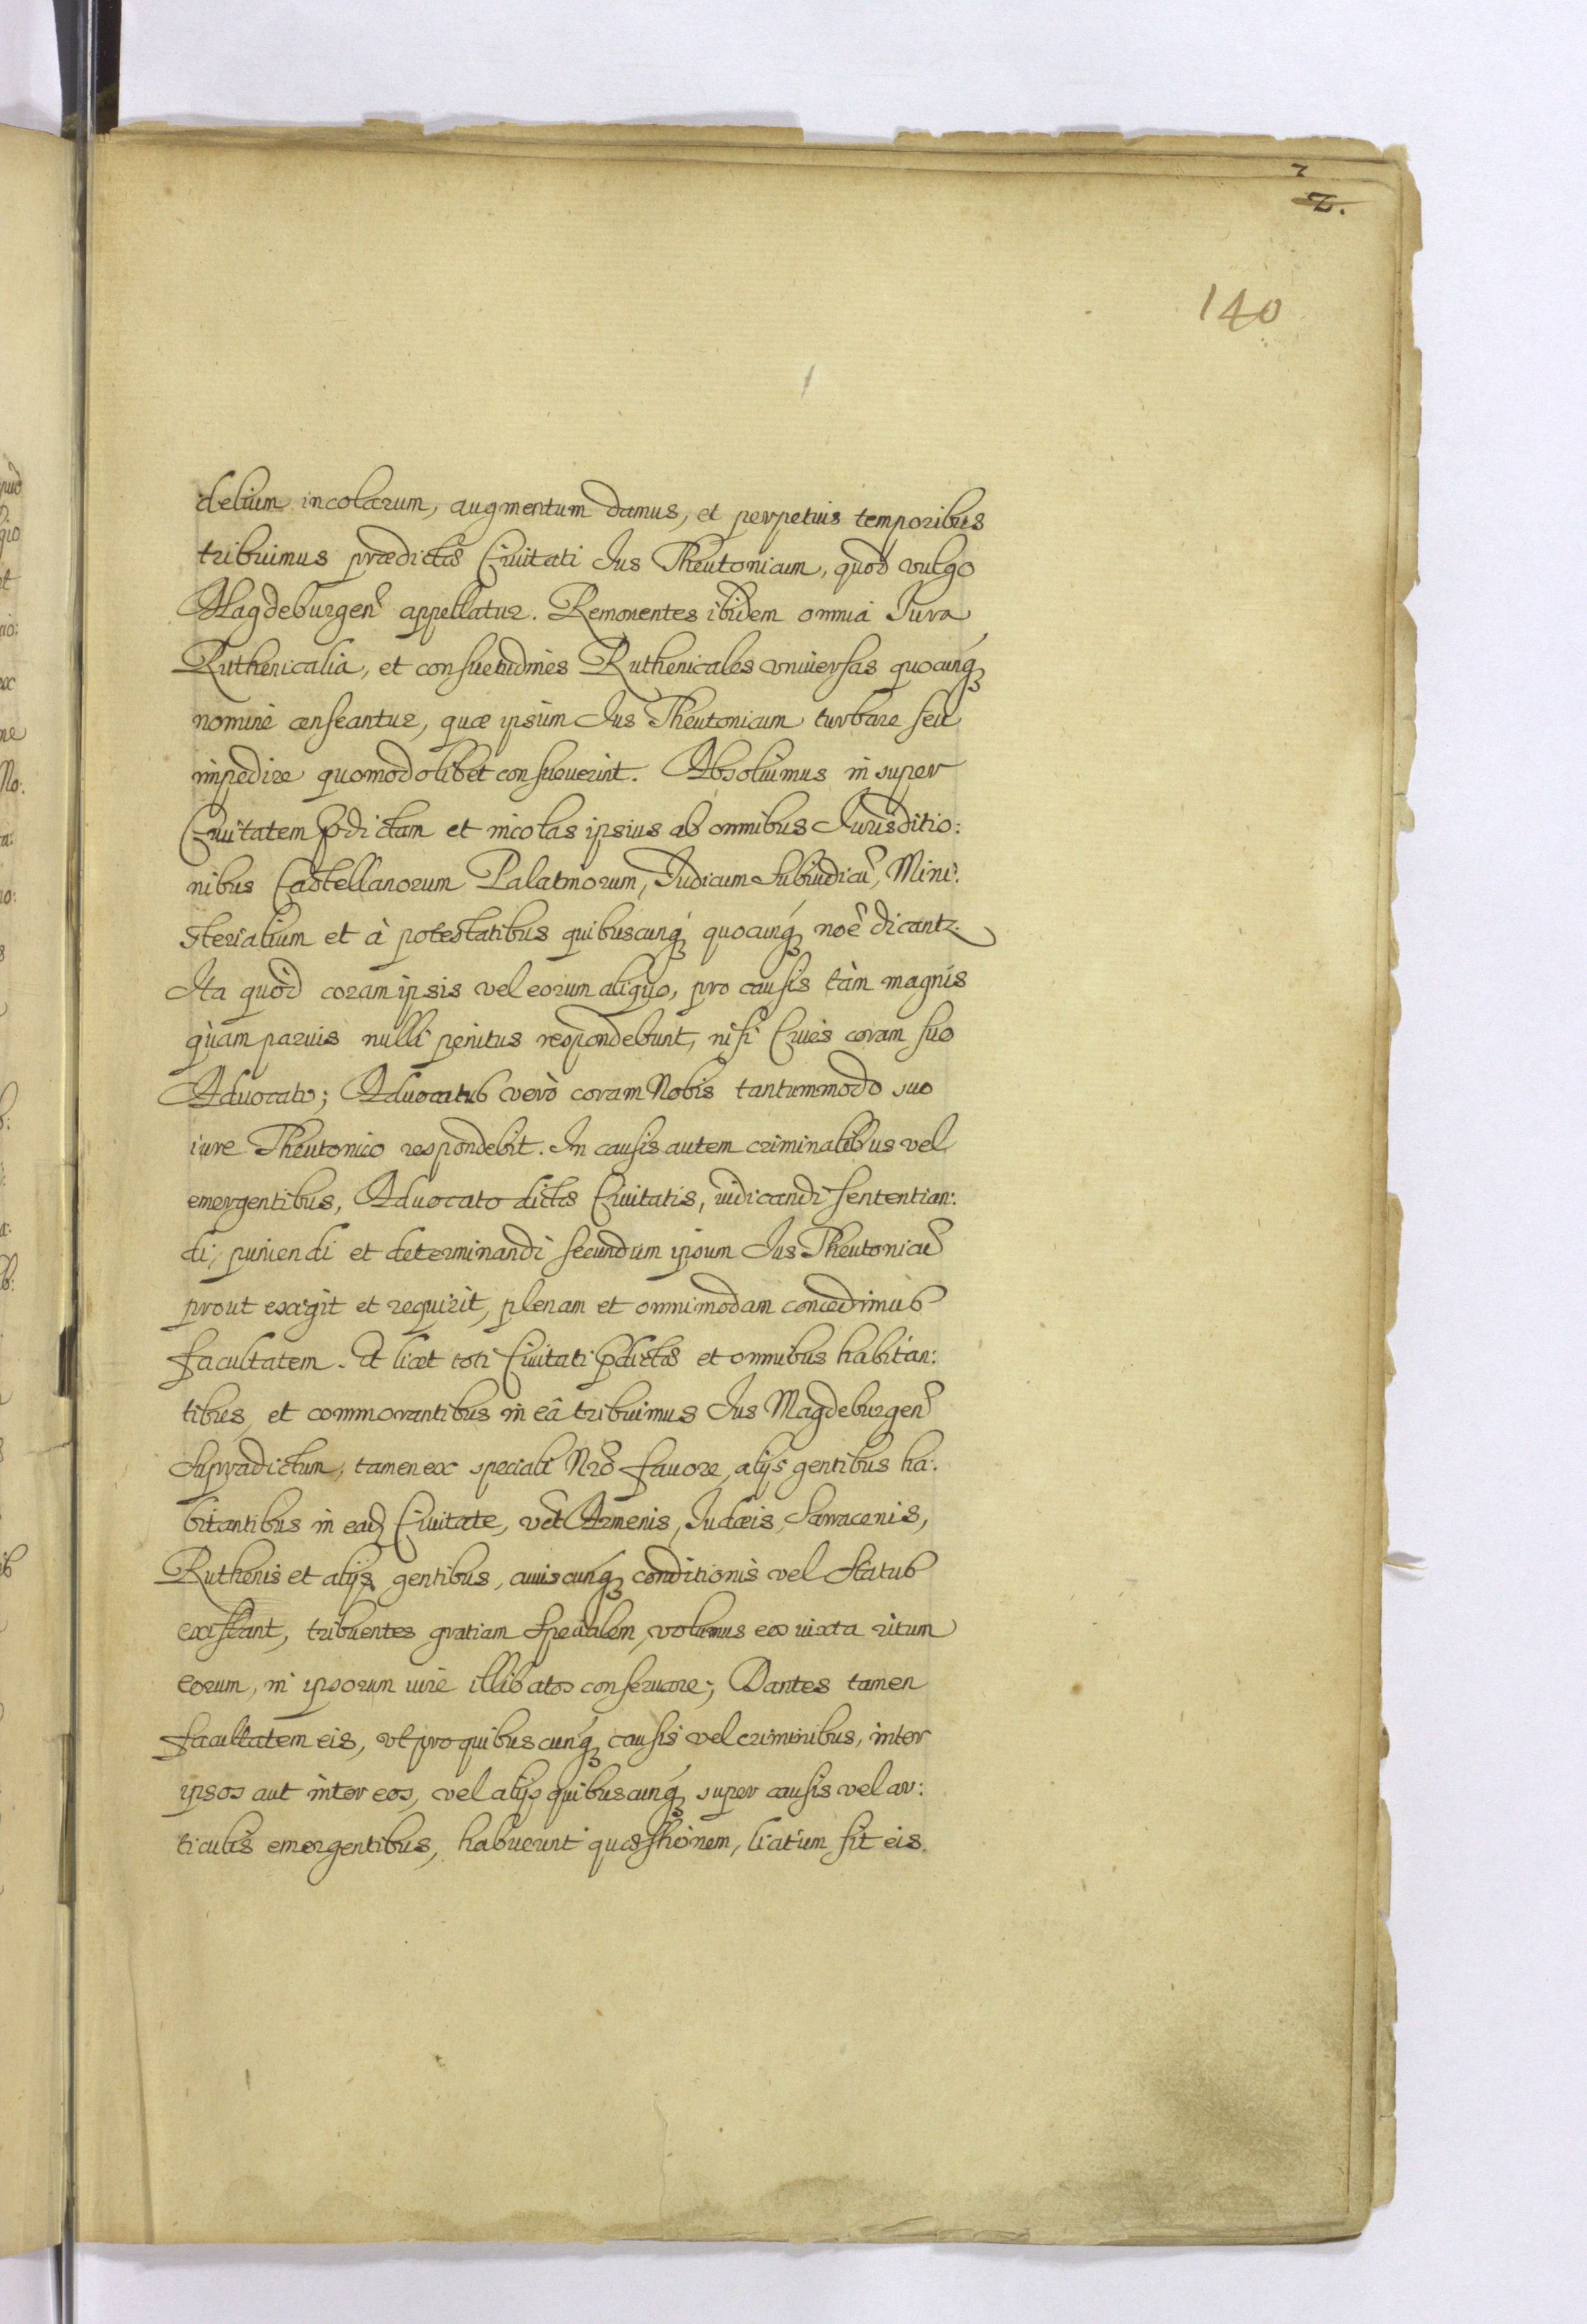 2
2.
140
delium incolarum, augmentum damus, et perpetuis temporibus
tribuimus prædictæ Ciuitati Ius Theutonicum, quod vulgo
Magdeburgen̄ appellatur. Remouentes ibidem omnia Iura
Ruthenicalia, et consuetudines Ruthenicales vniuersas quocunq́ꝫ
nomine censeantur, quæ ipsum Ius Theutonicum turbare seu
impedire quomodolibet consueuerint. Absoluimus in super
Ciuitatem p̄dictam et incolas ipsius ab omnibus Iurisditio:
nibus Castellanorum Palatinorum, Iudicum Subiudicū, Mini:
sterialium et à potestatibus quibuscunq́ꝫ quocunq́ꝫ noē dicantꝛ.
Ita quòd coram ipsis vel eorum aliquo, pro causis tàm magnis
quàm paruis nulli penitus respondebunt, nisi Ciues coram suo
Aduocato; Aduocatus verò coram Nobis tantummodo suo
iure Theutonico respondebit. In causis autem criminalibus vel
emergentibus, Aduocato dictæ Ciuitatis, iudicandi sententian:
di, puniendi et determinandi secundùm ipsum Ius Theutonicū
prout exigit et requirit, plenam et omnimodam concedimus
facultatem. Et licet toti Ciuitati p̄dictæ et omnibus habitan:
tibus, et commorantibus in eâ tribuimus Ius Magdeburgen̄
Supradictum, tamen ex speciali Nr̄o fauore, alijs gentibus ha:
bitantibus in eadꝫ Ciuitate, vt̄ Armenis, Iudæis, Sarracenis,
Ruthenis et alijs gentibus, cuiuscunq́ꝫ conditionis vel Status
existant, tribuentes gratiam Specialem, volumus eos iuxta ritum
eorum, in ipsorum iure illibatos conseruare; Dantes tamen
facultatem eis, vt pro quibuscunq́ꝫ causis vel criminibus, inter
ipsos aut inter eos, vel alijs quibuscunq́ꝫ super causis vel ar:
ticulis emergentibus, habuerint quæstionem, licitum sit eis.